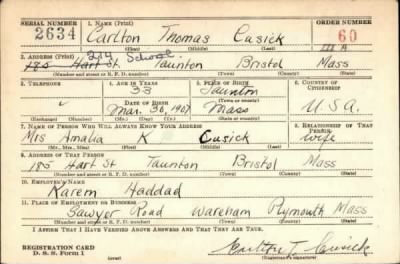 SERIAL NUMBER 1. NAME (Print) ORDER NUMBER
2634 Carlton Thomas Cusick 60
(First) (Middle) (Last) III A
214 School
2. ADDRESS (Print)
185 Hart St Taunton Bristol Mass
(Number and street or R. F. D. number) (Town) (County) (State)
3. TELEPHONE 4. AGE IN YEARS 5. PLACE OF BIRTH 6. COUNTRY OF CITIZENSHIP
33 Taunton
DATE OF BIRTH (Town or county)
Mar. 30, 1907 Mass U.S.A.
(Exchange) (Number) (Mo.) (Day) (Yr.) (State or country)
7. NAME OF PERSON WHO WILL ALWAYS KNOW YOUR ADDRESS 8. RELATIONSHIP OF THAT PERSON
Mrs Amalia K Cusick wife
(Mr., Mrs., Miss) (First) (Middle) (Last)
9. ADDRESS OF THAT PERSON
185 Hart St Taunton Bristol Mass
(Number and street or R. F. D. number) (Town) (County) (State)
10. EMPLOYER'S NAME
Karem Haddad
11. PLACE OF EMPLOYMENT OR BUSINESS
Sawyer Road Wareham Plymouth Mass
(Number and street or R. F. D. number) (Town) (County) (State)
I AFFIRM THAT I HAVE VERIFIED ABOVE ANSWERS AND THAT THEY ARE TRUE.
REGISTRATION CARD
D. S. S. Form 1 Carlton T. Cusick
(Registrant's signature)